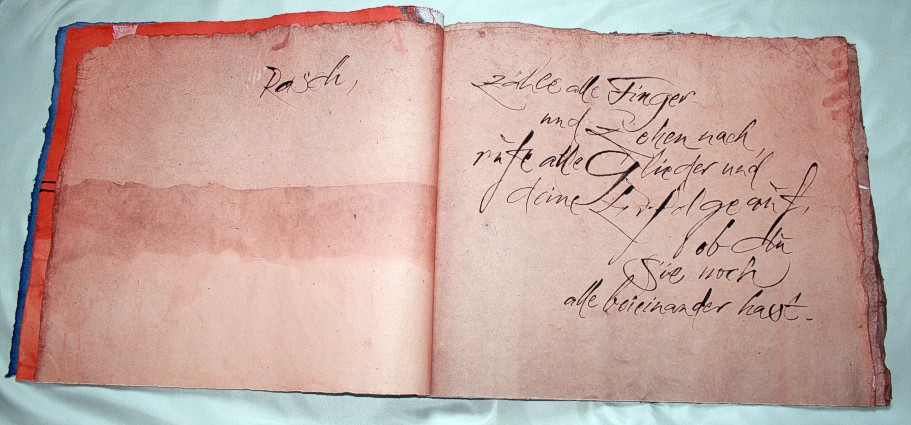 Rasch,
zähle alle Finger
und Zehen nach,
rufe alle Glieder und
deine auf,
ob du
Sie noch
alle beieinander hast.